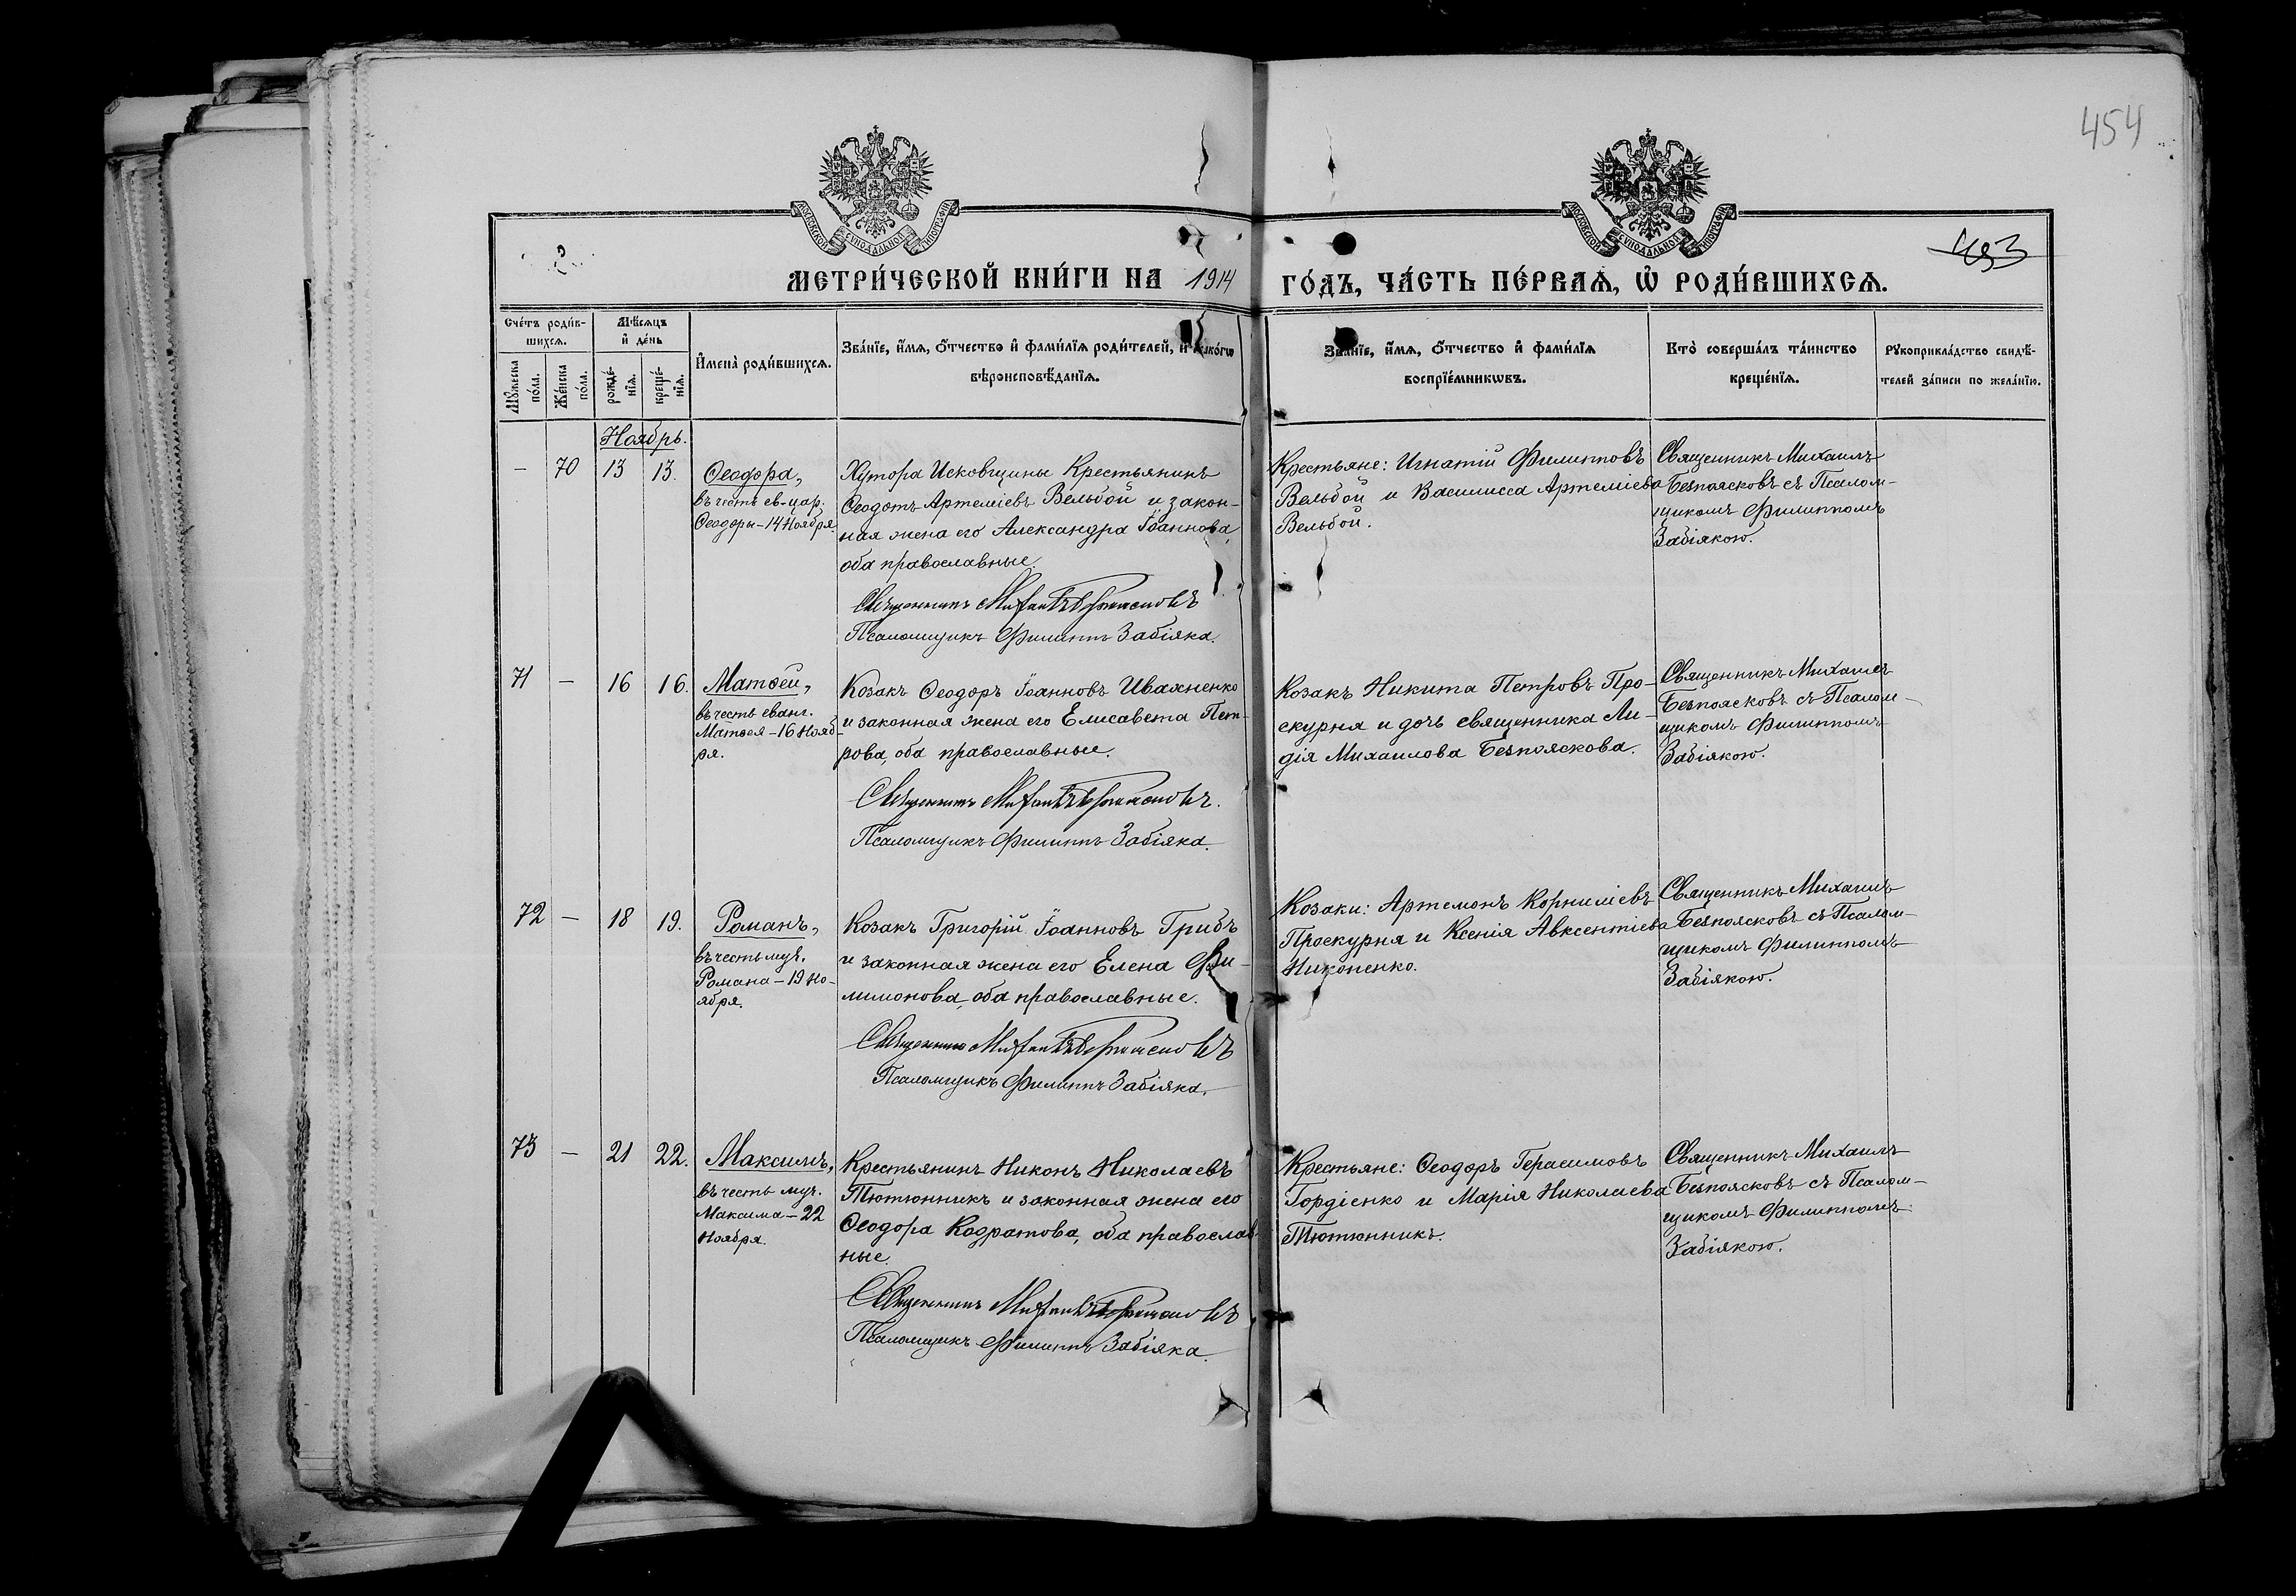 454
МОСКОВСКОЙ СѴНОДАЛЬНОЙ ТИПОГРАФІИ
МОСКОВСКОЙ СѴНОДАЛЬНОЙ ТИПОГРАФІИ
493
МЕТРИ́ЧЕСКОЙ КНИ́ГИ НА 1914 ГО́ДЪ, ЧА́СТЬ ПЕ́РВАѦ, Ѡ҆ РОДИ́ВШИХСѦ.
Сче́тъ роди́в-
шихсѧ.
Мѣ́сѧцъ
и҆ де́нь
Мꙋ́жеска
по́ла.
Же́нска
по́ла.
рожде́-
нїѧ.
креще́-
нїѧ.
И҆мена̀ роди́вшихсѧ.
Зва́нїе, и҆́мѧ, ѻ҆́тчество и҆ фами́лїѧ роди́телей, и҆ како́гѡ
вѣроисповѣ́данїѧ.
Зва́нїе, и҆́мѧ, ѻ҆́тчество и҆ фами́лїѧ
воспрїе́мникѡвъ.
Кто̀ соверша́лъ та́инство
креще́нїѧ.
Рꙋкоприкла́дство свидѣ́-
телей за́писи по жела́нїю.
Ноябрь.
— 70 13 13.
Ѳеодора,
въ честь св. цар.
Ѳеодоры – 14 Ноября
Хутора Исковщины Крестьянинъ
Ѳеодотъ Артеміевъ Вельбой и закон-
ная жена его Александра Іоаннова,
оба православные.
Священникъ Михаилъ Безпоясковъ
Псаломщикъ Филиппъ Забіяка.
Крестьяне: Игнатій Филипповъ
Вельбой и Василисса Артеміева
Вельбой.
Священникъ Михаилъ
Безпоясковъ съ Псалом-
щикомъ Филиппомъ
Забіякою.
71 — 16 16.
Матѳей,
въ честь еванг.
Матѳея – 16 Нояб-
ря.
Козакъ Ѳеодоръ Іоанновъ Ивахненко
и законная жена его Елисавета Пет-
рова, оба православные.
Священникъ Михаилъ Безпоясковъ.
Псаломщикъ Филиппъ Забіяка.
Козакъ Никита Петровъ Про-
скурня и дочь священника Ли-
дія Михаилова Безпояскова.
Священникъ Михаилъ
Безпоясковъ съ Псалом-
щикомъ Филиппомъ
Забіякою.
72 — 18 19.
Романъ,
въ честь муч.
Романа – 19 Но-
ября.
Козакъ Григорій Іоанновъ Грибъ
и законная жена его Елена Фи-
лимонова, оба православные.
Священникъ Михаилъ Безпоясковъ
Псаломщикъ Филиппъ Забіяка.
Козаки: Артемонъ Корниліевъ
Проскурня и Ксенія Авксентіева
Никоненко.
Священникъ Михаилъ
Безпоясковъ съ Псалом-
щикомъ Филиппомъ
Забіякою.
73 — 21 22.
Максимъ,
въ честь муч.
Максима – 22
Ноября.
Крестьянинъ Никонъ Николаевъ
Тютюнникъ и законная жена его
Ѳеодора Кодратова, оба православ-
ные.
Священникъ Михаилъ Безпоясковъ
Псаломщикъ Филиппъ Забіяка.
Крестьяне: Ѳеодоръ Герасимовъ
Гордіенко и Марія Николаева
Тютюнникъ.
Священникъ Михаилъ
Безпоясковъ съ Псалом-
щикомъ Филиппомъ
Забіякою.